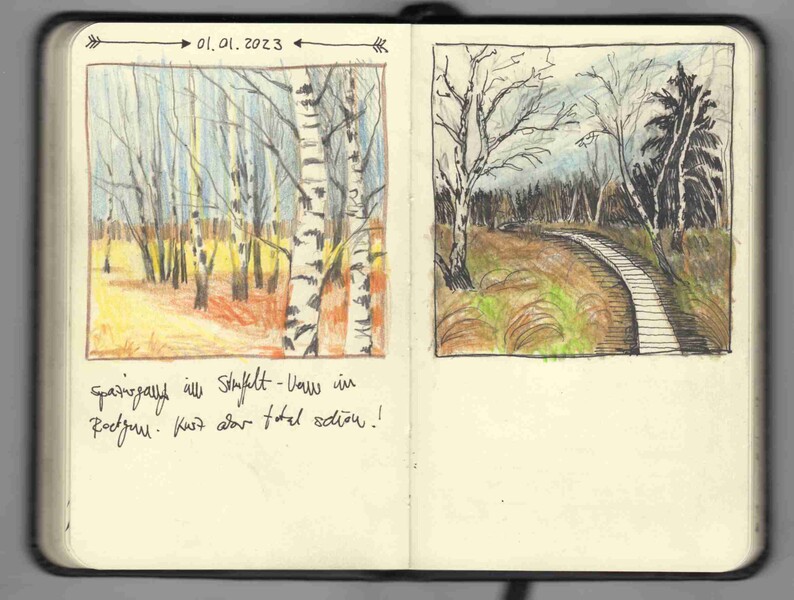 01.01.2023
Spaziergang im Struffelt-Venn in
Roetgen. Kurz aber total schön!